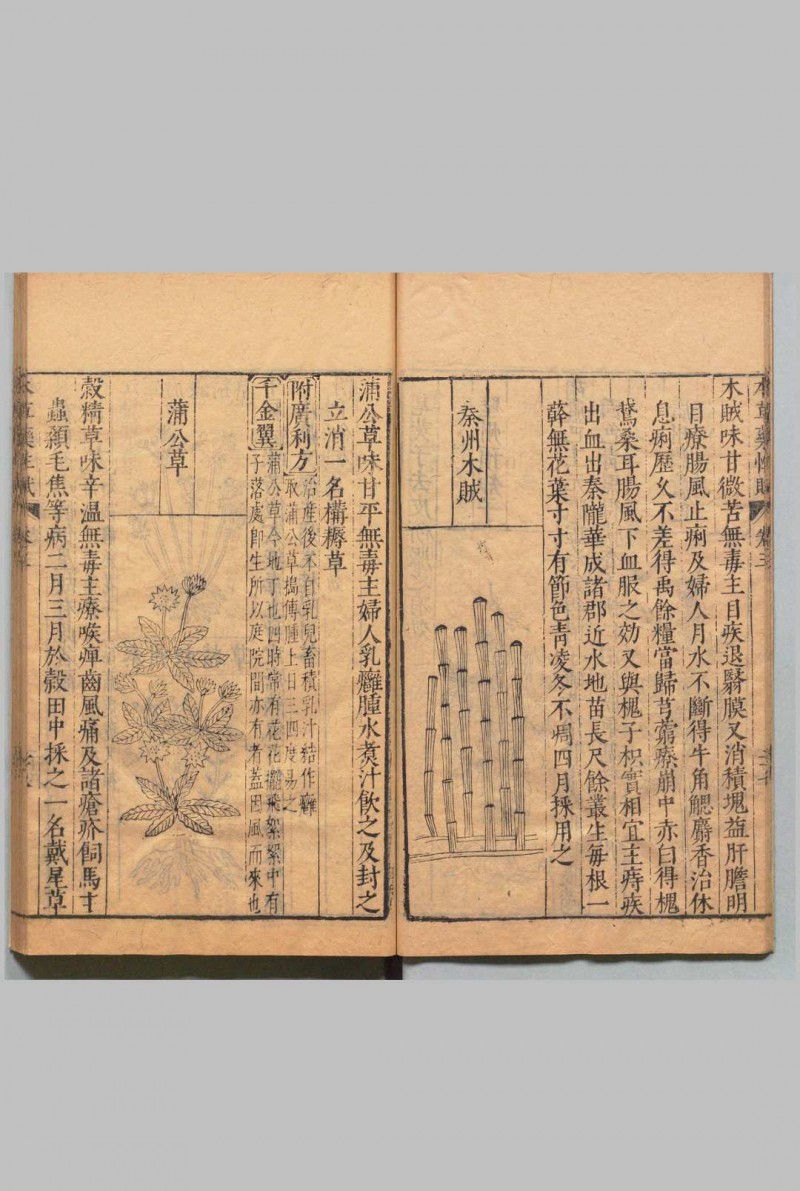 木賊味甘微苦無毒主目疾退翳膜又消積塊益肝膽明
目療腸風止痢及婦人月水不斷得牛角䚡麝香治休
息痢歷久不差得禹餘糧當歸芎藭療崩中赤白得槐
鵞桑耳腸風下血服之効又與槐子枳實相宜主痔疾
出血出秦隴華成諸郡近水地苗長尺餘叢生每根一
幹無花葉寸寸有節色青凌冬不凋四月採用之
秦州木賊
蒲公草味甘平無毒主婦人乳癰腫水煮汁飲之及封之
立消一名構耨草
附廣利方
治產後不自乳兒畜積乳汁結作癰
取蒲公草搗傅腫上日三四度易之
千金翼
蒲公草今地丁也四時常有花花罷飛絮絮中有
子落處即生所以庭院間亦有者蓋因風而來也
蒲公草
穀精草味辛溫無毒主療喉痺齒風痛及諸瘡疥飼馬主
蟲顙毛焦等病二月三月於穀田中採之一名戴星草